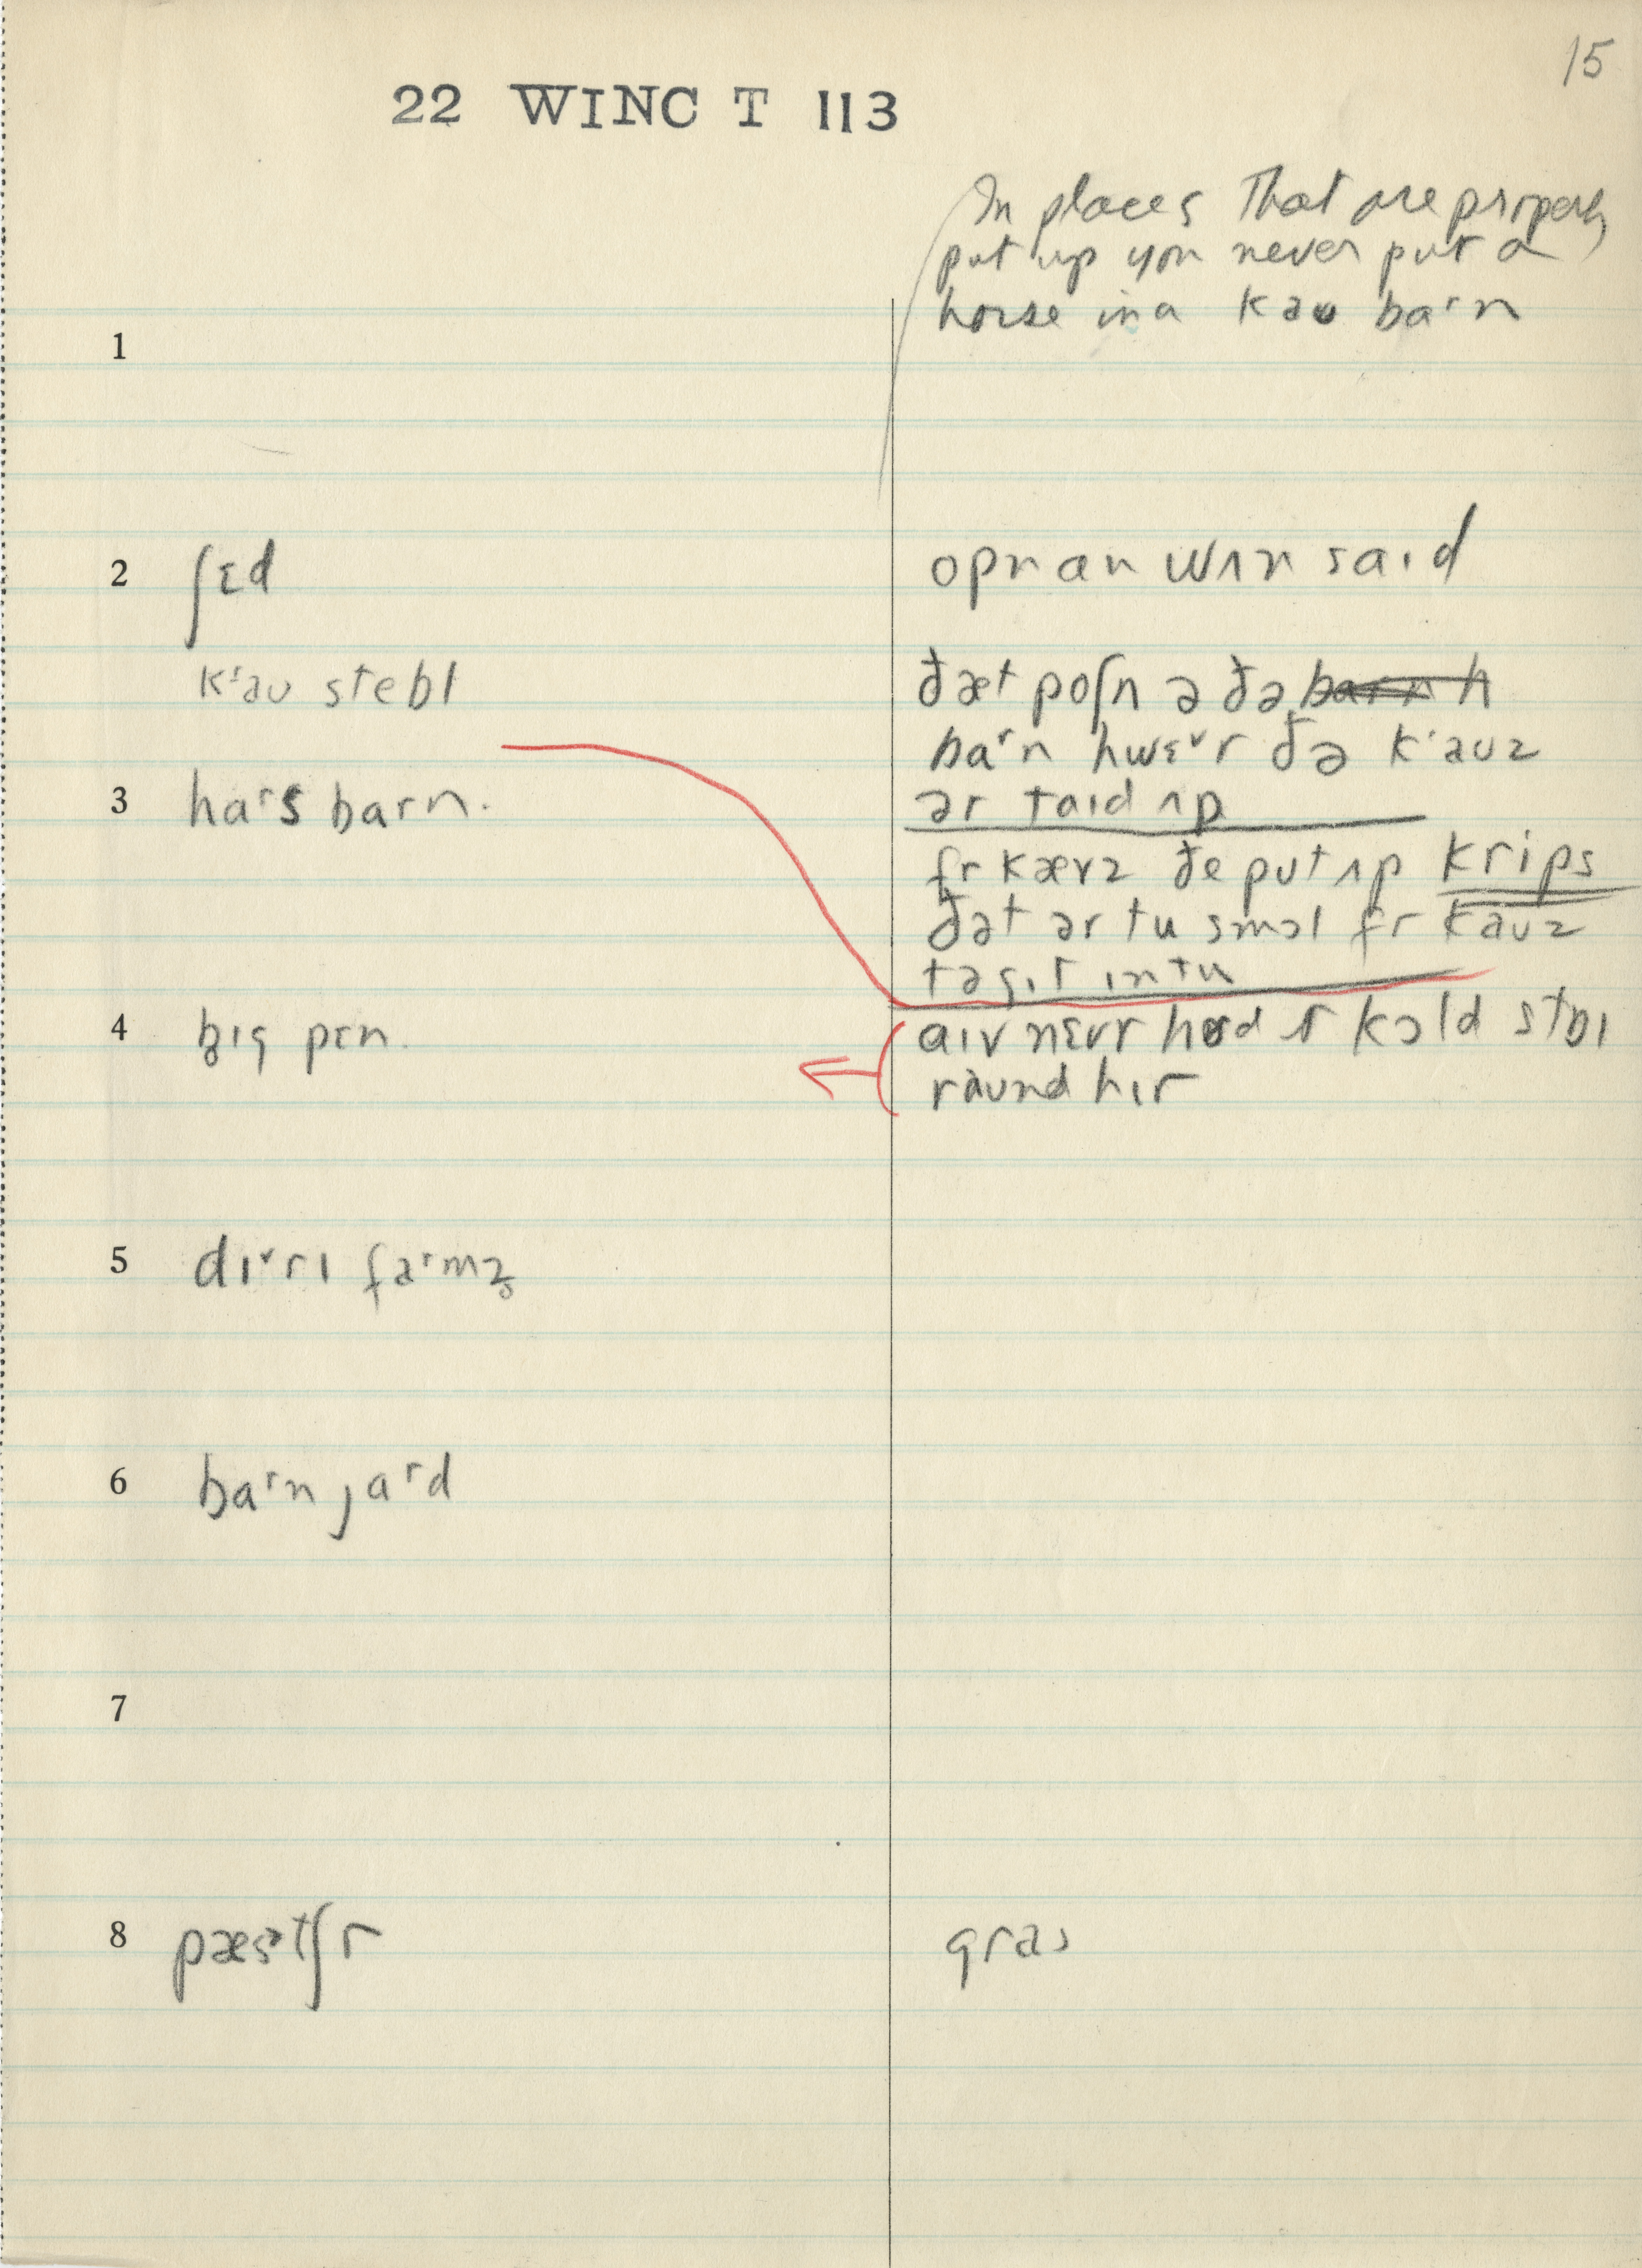 15
22 WINC T 113
In places that are properly
put up you never put a
horse in a kəʊ baʳn
1
2 ʃɛd
opn an wʌn saɪd
kʻəʊ stebl
ðæt poʃn ə ðə
baʳn hwɛᵛr ðə kʻəʊz
3 haʳs barn.
ər taɪd ʌp
fr kævz ðe put ʌp krips
ðət ər tu smɔl fr kaʊz
tə gɪt ɪntu
4 bɪg pɛn.
aɪv nɛvr hɜd ɪt kɔld stɒl
raʊnd hɪr
5 dɪᵛrɪ faʳmz̥
6 baʳn jaʳd
7
8 pæstʃr
gras